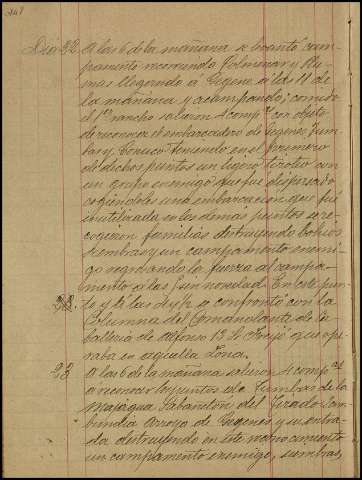 Dia 22 A las 6 de la mañana se levantó cam-
pamento recorriendo Palmenar y Ru-
nas llegando á Gegenes á las 11 de
la mañana y acampando; comido
el 1er rancho salieron 4 compas con objeto
de reconocer el embarcadero de Gegenes, Fum-
bas y Conuco teniendo en el primero
de dichos puntos un ligero tiroteo con
un grupo enemigo que fue dispersado
cogiendoles una embarcacion que fué
inutilizada, en los demas puntos se re-
cogieron familias destruyendo bohios
siembras y un campamento enemi-
go regresando la fuerza al campa-
mento a las sin novedad. En este pun-
to y á las 4 se confrontó con la
Columna del Comandante de Ca-
balleria de Alfonso 13 Sr. que ope-
raba en aquella Zona.
23 A las 6 de la mañana salieron 4 compas
a reconocer los puntos de Tumbas de la
Majagua Sabanetón del Tirado
Arroyo de Gegenes y su entra-
da destruyendo en este reconocimiento
un campamento enemigo, siembras,